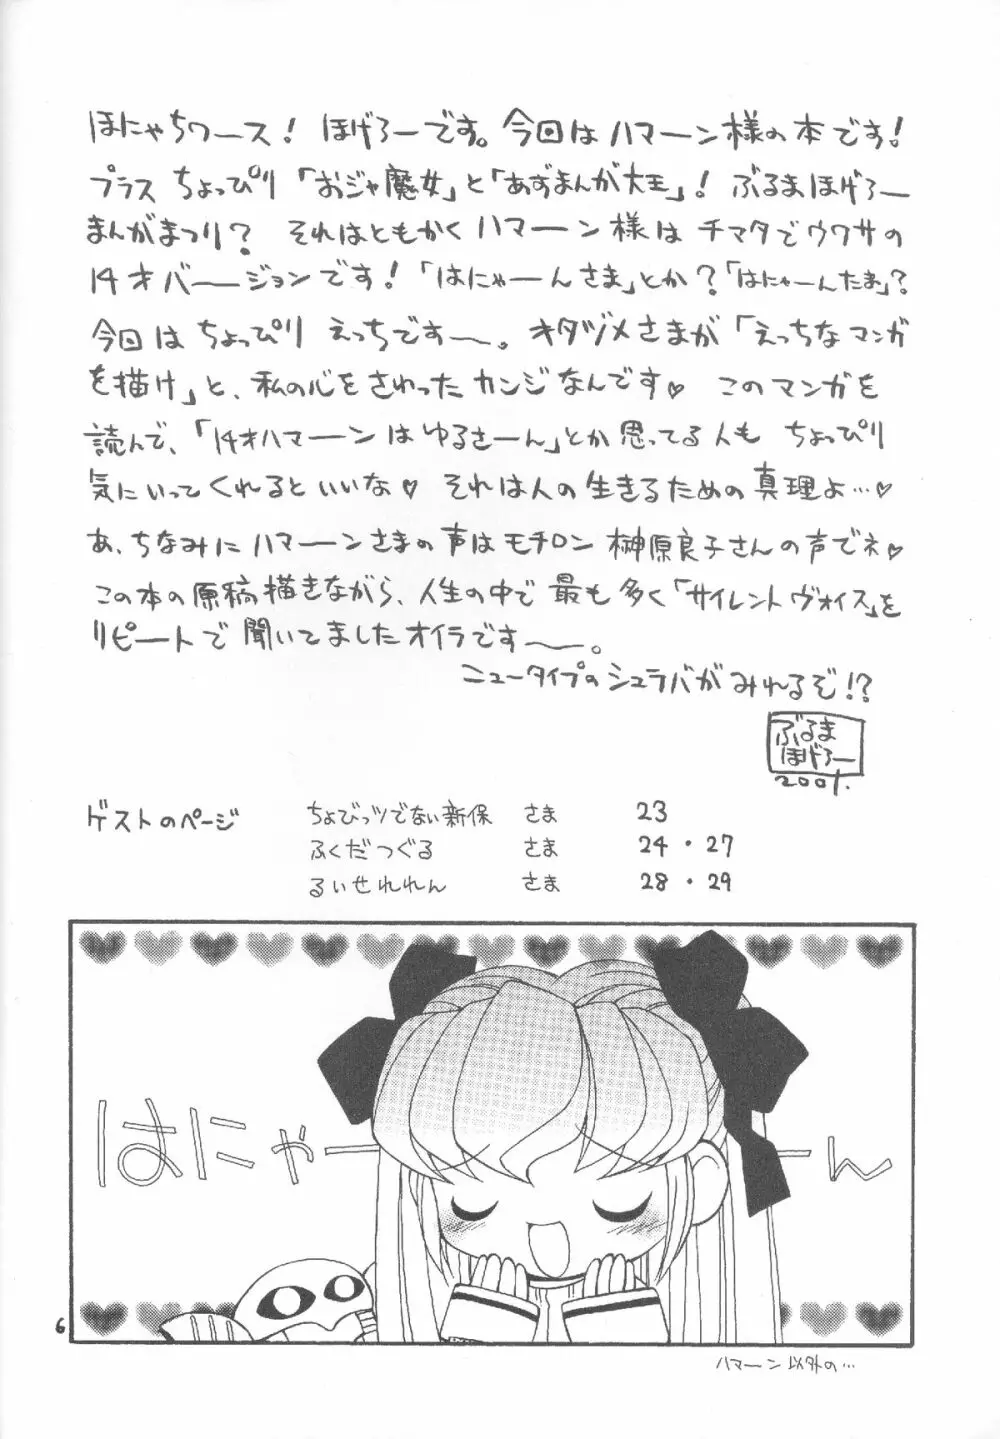 ほにゃちワース! ほげろーです。今回はハマーン様の本です!
プラス ちょっぴり「おジャ魔女」と「あずまんが大王」! ぶるまほげろー
まんがまつり? それはともかくハマーン様は チマタでウワサの
14才バージョンです!「はにゃーんさま」とか?「はにゃーんたま」?
今回は ちょっぴり えっちです〜。オタヅメさまが「えっちなマンガ
を描け」と、私の心をさわったカンジなんです♡ このマンガを
読んで、「14才ハマーンはゆるさーん」とか思ってる人も ちょっぴり
気にいってくれるといいな♡ それは人の生きるための真理よ…♡
あ、ちなみにハマーンさまの声はモチロン 榊原良子さんの声でネ♡
この本の原稿描きながら、人生の中で 最も多く「サイレントヴォイス」を
リピートで聞いてましたオイラです〜。
ニュータイプのシュラバがみれるぞ!?
ぶるま
ほげろー
2001.
ゲストのページ ちょびっツでない新保 さま 23
ふくだつぐる さま 24・27
るいせれれん さま 28・29
はにゃーーん
6
ハマーン以外の…